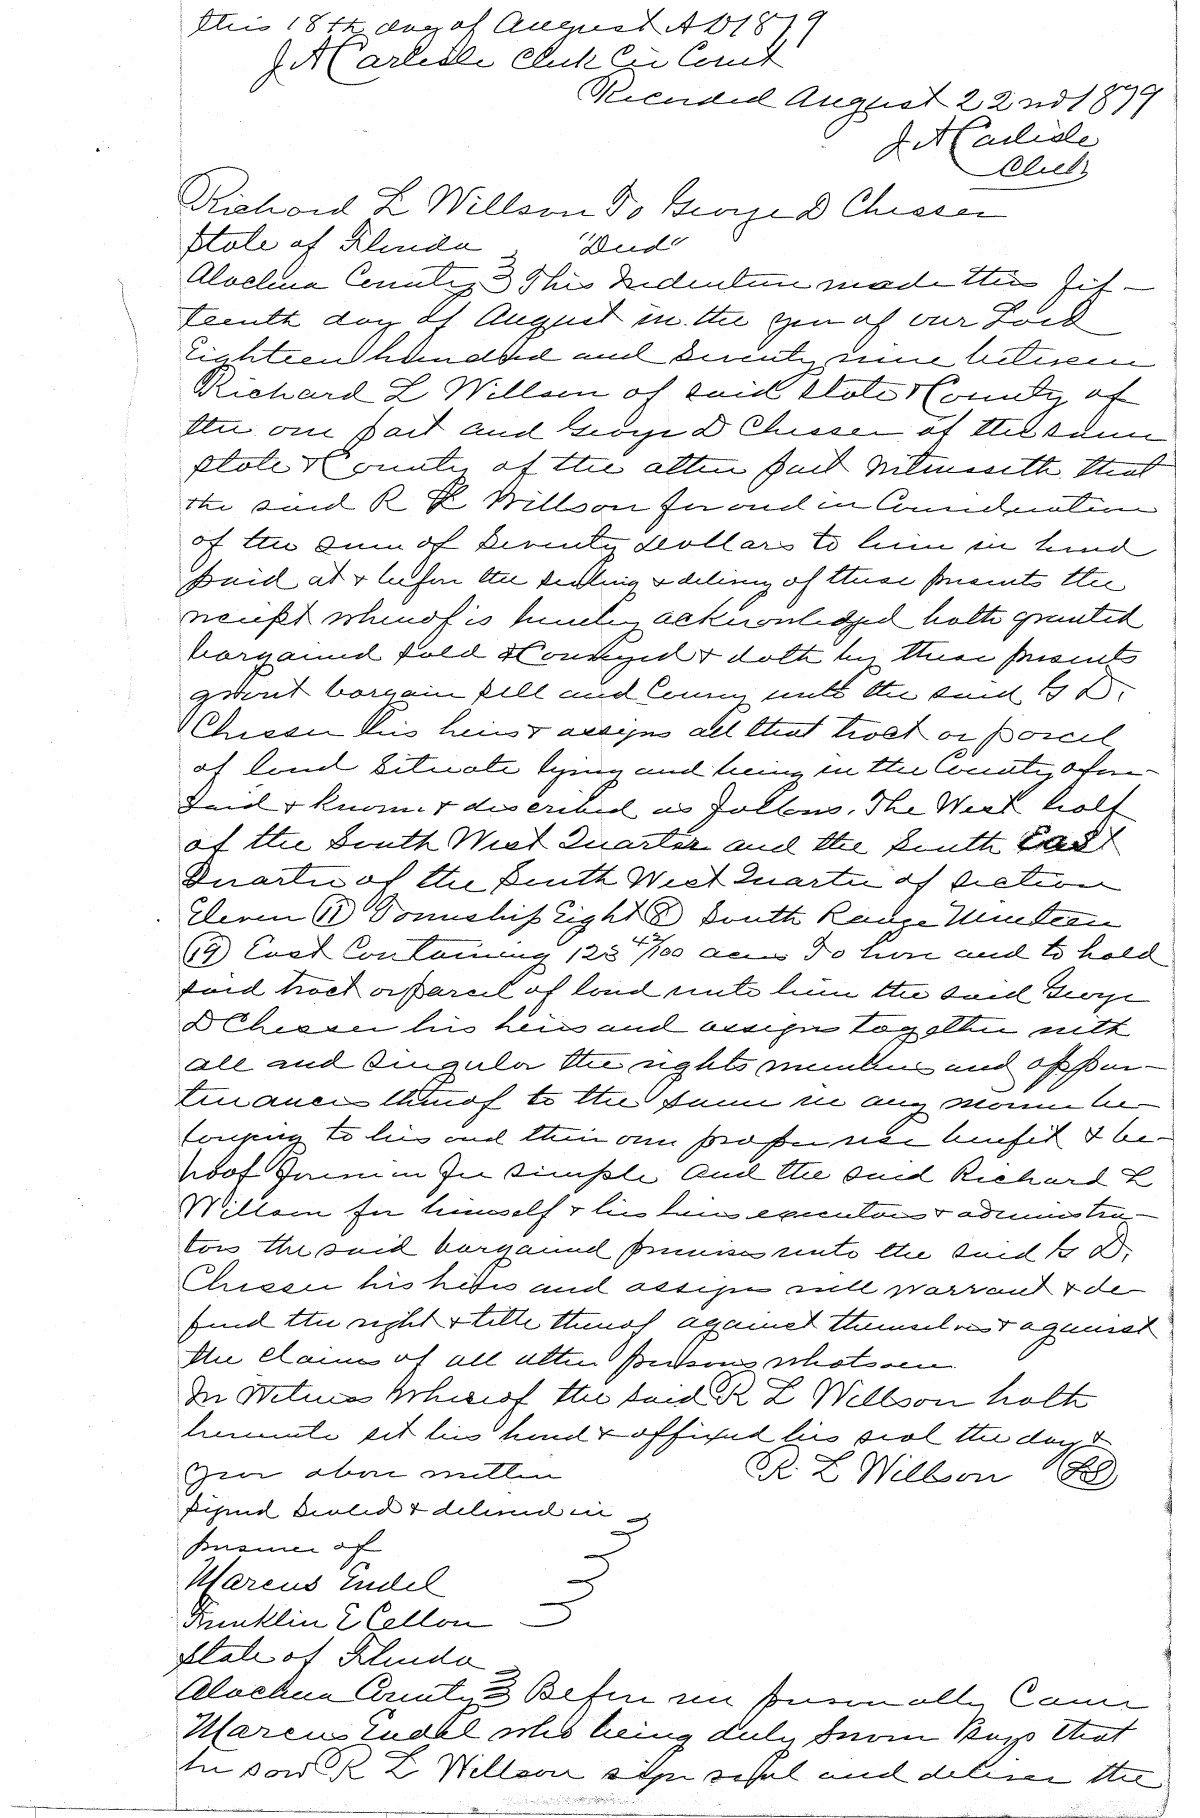 this 18th day of August AD 1879
J A Carlisle Clerk Cir Court
Recorded August 22nd 1879
J A Carlisle
Clerk
Richard L Willson To George D Chesser
State of Florida "Deed"
Alachua County } This Indenture made this fif-
teenth day of August in the year of our Lord
Eighteen hundred and Seventy nine between
Richard L Willson of said State & County of
the one part and George D Chesser of the same
State & County of the other part Witnesseth that
the said R L Willson for and in Consideration
of the sum of Seventy Dollars to him in hand
paid at & before the sealing & delivery of these presents the
receipt whereof is hereby acknowledged hath granted
bargained sold & Conveyed & doth by these presents
grant bargain sell and Convey unto the said G D.
Chesser his heirs & assigns all that tract or parcel
of land Situate lying and being in the County afore-
said & known & described as follows. The West half
of the South West Quarter and the South East
Quarter of the South West Quarter of Section
Eleven (11) Township Eight (8) South Range Nineteen
(19) East Containing 123 42/100 acres To have and to hold
said tract or parcel of land unto him the said George
D Chesser his heirs and assigns together with
all and Singular the rights members and appur-
tenances thereof to the same in any manner be-
longing to his and their own proper use benefit & be-
hoof forever in fee simple and the said Richard L
Willson for himself & his heirs executors & administra-
tors the said bargained premises unto the said G D.
Chesser his heirs and assigns will warrant & de-
fend the right & title thereof against themselves & against
the claims of all other persons whatsoever
In Witness Whereof the said R L Willson hath
hereunto set his hand & affixed his seal the day &
year above written R. L Willson (LS)
Signed Sealed & delivered in
presence of }
Marcus Endel
Franklin E Cellon
State of Florida
Alachua County } Before me personally Came
Marcus Endel who being duly Sworn Says that
he saw R L Willson sign seal and deliver the